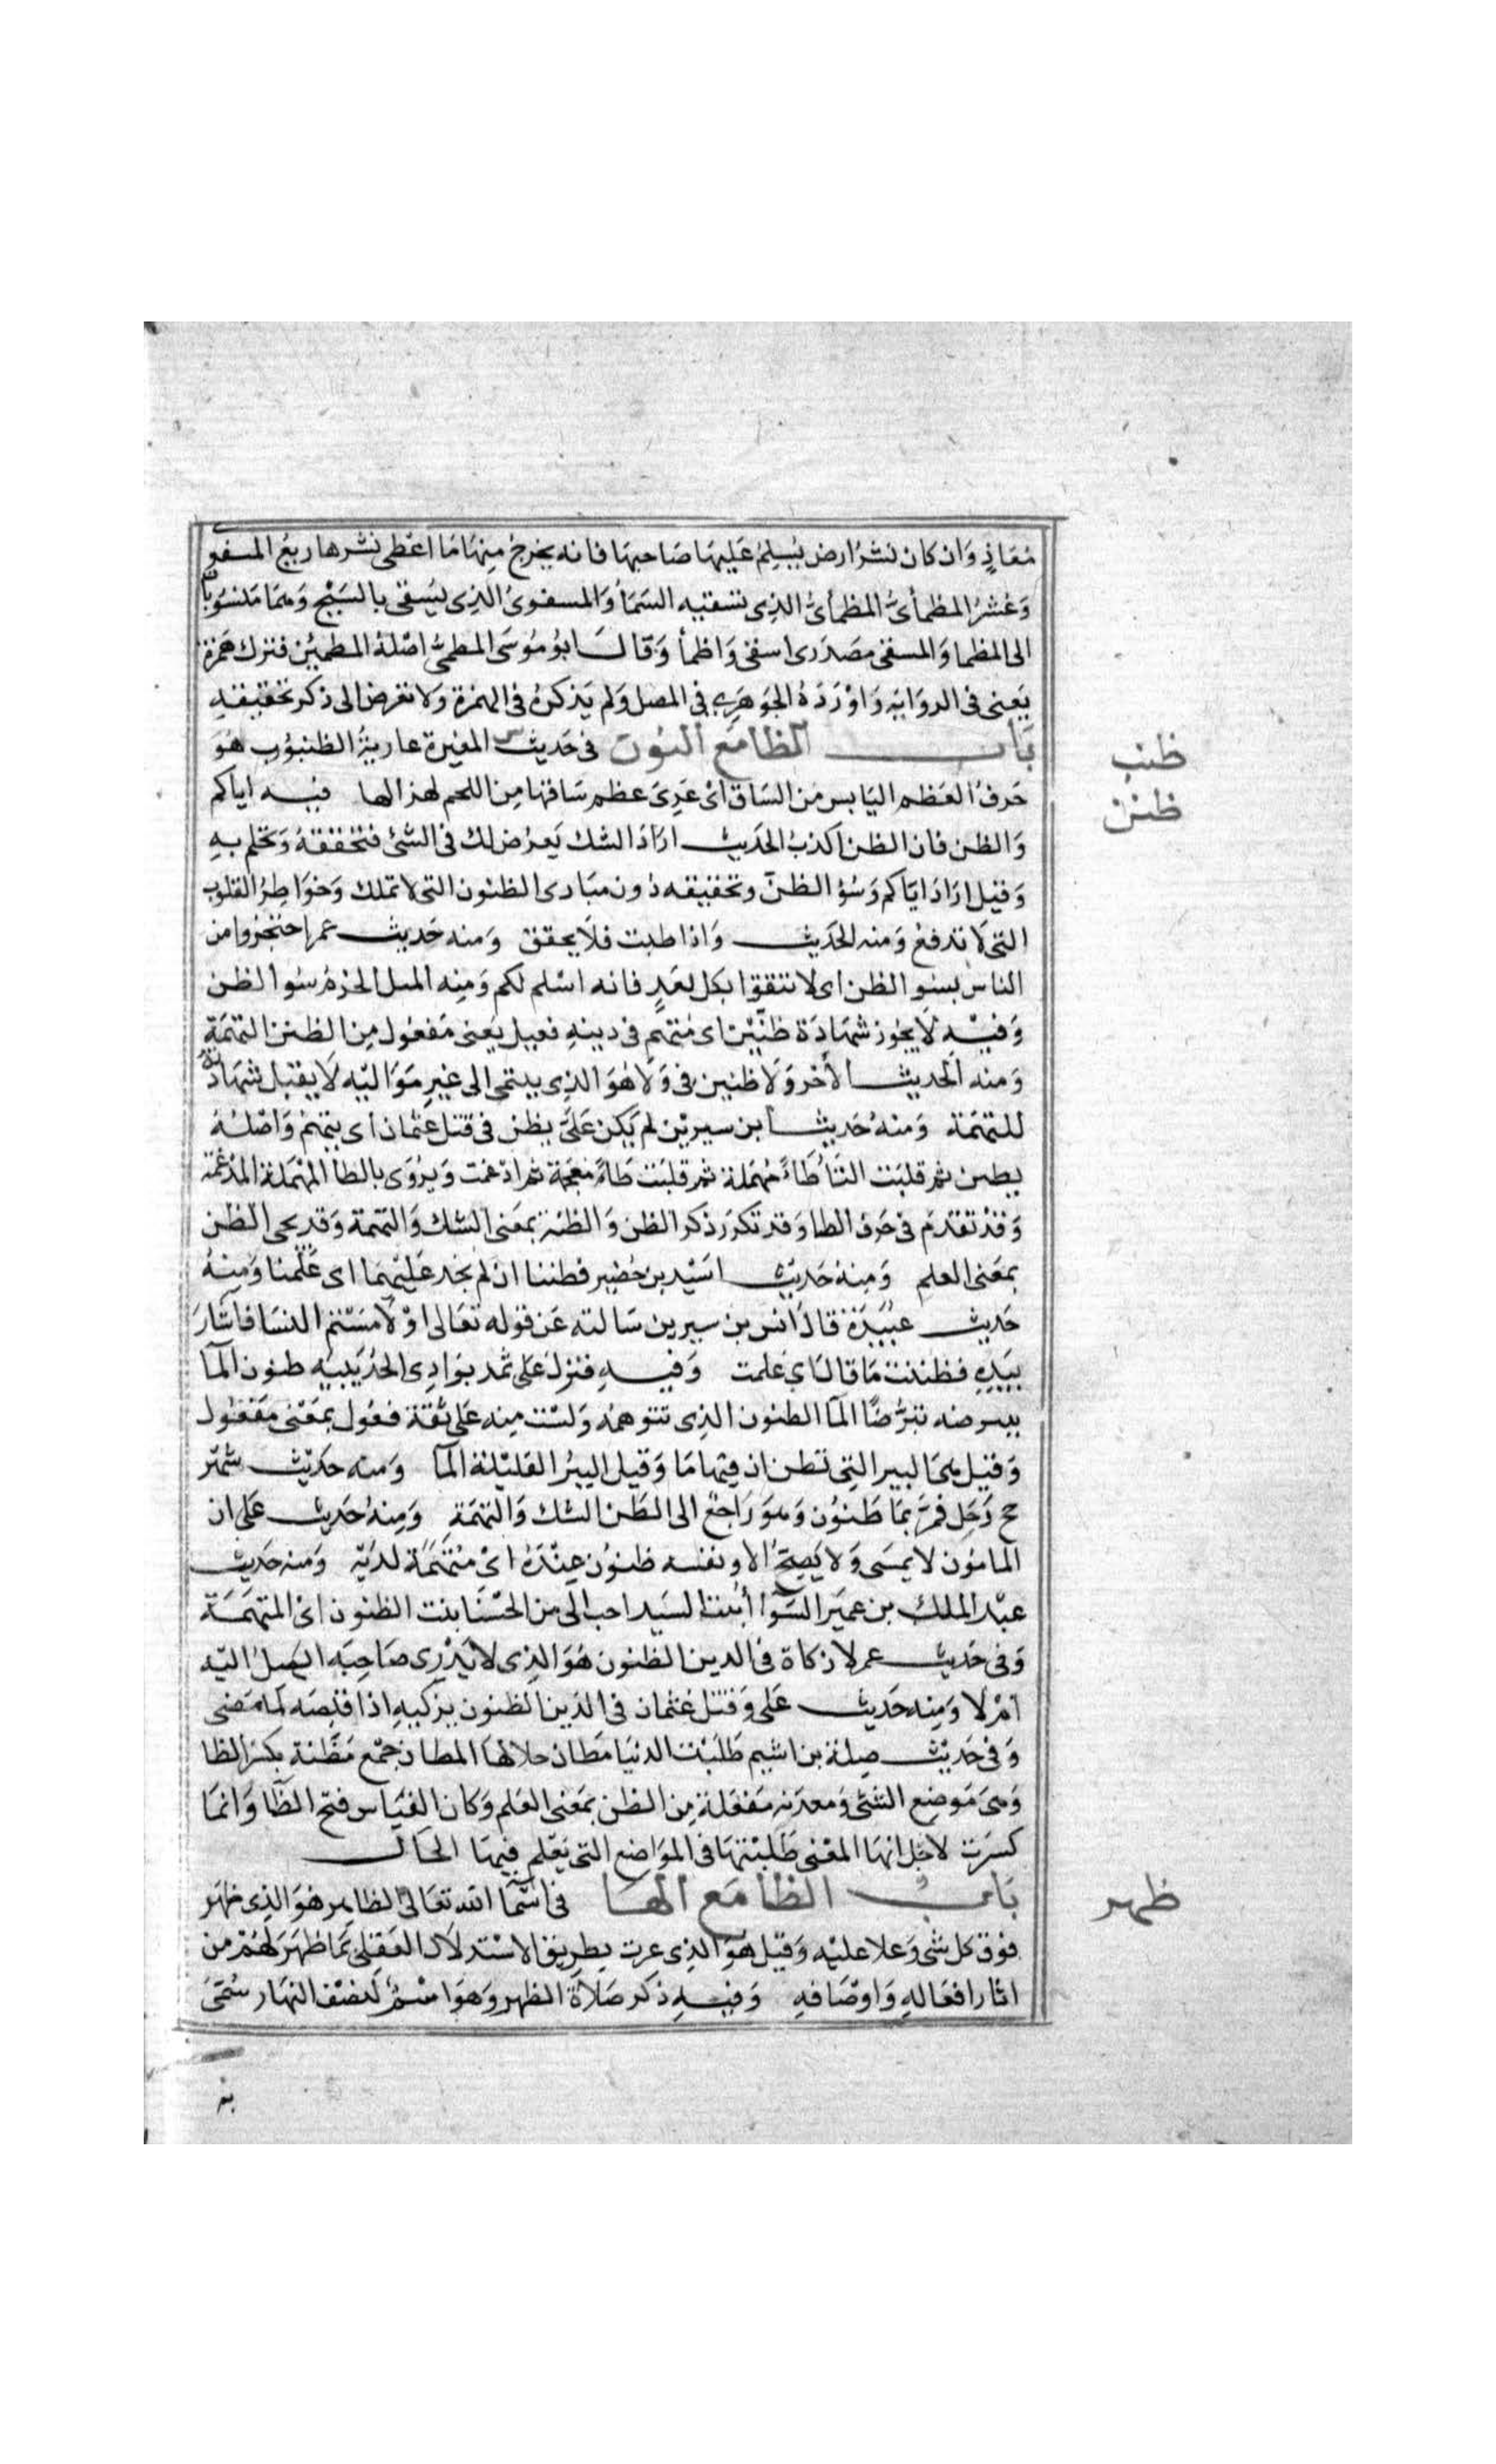 مُعَاذٍ وَان كان نشرُ ارض يُسلِمُ عَليهَا صَاحبهَا فانه يخرجُ مِنهَا مَا اعْطى نشرها ربعُ المسفو
وَعُشرُ المظمأىُّ المظمأىُّ الذى تسقيه السّمَا وَالمسفوىُّ الذى يسقى بالسَيْح وَمما مَنسوبًا
الى المظما وَالمسقى مصدَرى اسقى وَاظمأ وَقال ابوُ مُوسَى المظمىُّ اصْلهُ المظمئىُ فترك همزة
يَعنى فى الروَايَة وَاوْرَدَهُ الجوهَرى فى المعتل وَلم يَذكرهُ فى الهمزة وَلا تعرض الى ذكر تخفيفه
بَاب الظا مَع النون فى حَديث المغيرة عارية الظنبوُب هُوَ
حَرفُ العَظم اليَابس مِن السَاق اىْ عَرِىَ عظم سَاقهَا مِن اللحم لهزالها فيه اياكم
وَالظن فان الظن اكذبُ الحَديث ارَادَ الشك يَعرُض لك فى الشئ فتحققهُ وَتحكم بهِ
وَقيل ارَادَ ايَّاكم وَسُوُ الظنّ وتحقيقه دُون مبَادى الظنون التى لا تملك وَخوَاطِرُ القلوب
التى لا تدفعُ وَمنه الحَديث وَاذا ظننت فلا يحقق وَمنه حَديث عمر احتجزوا من
الناس بسو الظن اى لا تثقوا بكل احدٍ فانه اسْلم لكم وَمِنه المثل الحزمُ سُو الظن
وَفيْه لا يجوز شهَادَة ظنِّيْن اى مُتهم فى دِينهِ فعيل بمَعنى مَفعُول مِن الظنن التهمَة
وَمنه الحديث الأخر وَلا ظنين فى وَلاهُوَ الذى ينتمى الى غير مَوَاليْه لا يقبل شهَادته
للتهمَة وَمنهُ حَديث ابن سيرين لم يَكن عَلىَّ يظن فى قتل عثمان اى يتهمُ وَاصْلهُ
يظتن ثمر قلبَت التَّا طَاءً مُهمَلة ثم قلبَت ظَاءً مُعجَمة ثم ادغمت وَيرُوَى بالطا المُهمَلة المدْغمَة
وَقدْ تقدمَ فى حَرف الطا وَقد تكرَر ذكر الظن وَالظنة بمَعنى الشك وَالتهمة وَقد يجى الظن
بمَعنى العلم وَمِنهُ حَديث اسَيْد بن حُضير فظننا ان لم يجد عَليْهمَا اى عَلمنا وَمِنهُ
حَديث عُبيْدَة قال انس بن سيرين سَالته عَن قوله تعَالى اوْ لامَسْتم النسَا فاشارَ
بيَدِهِ فظننت مَا قال اى عَلمت وَفيه فنزل على ثمد بوَادِى الحُدَيبيَه ظنون المآ
يتبرضه تبرُّضًا المآ الظنون الذى تتوهمُه وَلسْت مِنه عَلى ثقة فعُول بمَعْنى مَفعُول
وَقيْل هىَ البير التى تظن ان فِيهَا مَا وَقيل البيرُ القليْلة المآ وَمنه حَديث شَهْر
حج رَجل فمرَّ بمَا ظنوُن وَهوَ رَاجع الى الظن الشك وَالتهمَةِ وَمِنهُ حَديث عَلى ان
المامُون لا يمسَى وَلا يُصبحُ الا ونفسه ظنوُن عِندَهُ اىْ مُتهَمَة لدَيْه وَمنه حَديث
عبْد الملك بن عمَير السَّوَا ابنت السَيد احب الى من الحسْنا بنت الظنون اىْ المتهمَة
وَفى حَديث عمر لا زكاة فى الدين الظنون هُوَ الذى لا يدْرى صَاحبَه ايَصلُ اليْه
امْ لا وَمِنه حَديث عَلى وَقتل عثمان فى الدَين الظنون يزكيهِ اذا قبضَه لما مَضى
وَفى حَديث صِلة بن اشيم طَلبْت الدنيَا مَظان حلالهَا المظان جمْع مَظنة بكسر الظا
وَهىَ مَوضع الشئ وَمعدنه مَفعَلة مِن الظن بمَعنى العَلم وَكان القيَاس فتح الظَا وَانمَا
كسَرت لاجْل الهَا المعْنى طَلبْتهَا فى الموَاضع التى يَعْلم فِيهَا الحَلال
بَاب الظا مَع الها فى اسْمَا الله تعَالى الظاهر هُوَ الذى ظهَر
فوق كل شى وَعلا عليْه وَقيْل هوَ الذى عرف بطريق الاستدلال العَقلى بمَا ظهَرَ لهُم من
اثار افعَالهِ وَاوْصَافهِ وَفيهِ ذكر صَلاة الظهر وَهوَ اسْمٌ لنصْف النهَار سُمّىَ
به
ظنب
ظنن
ظهر